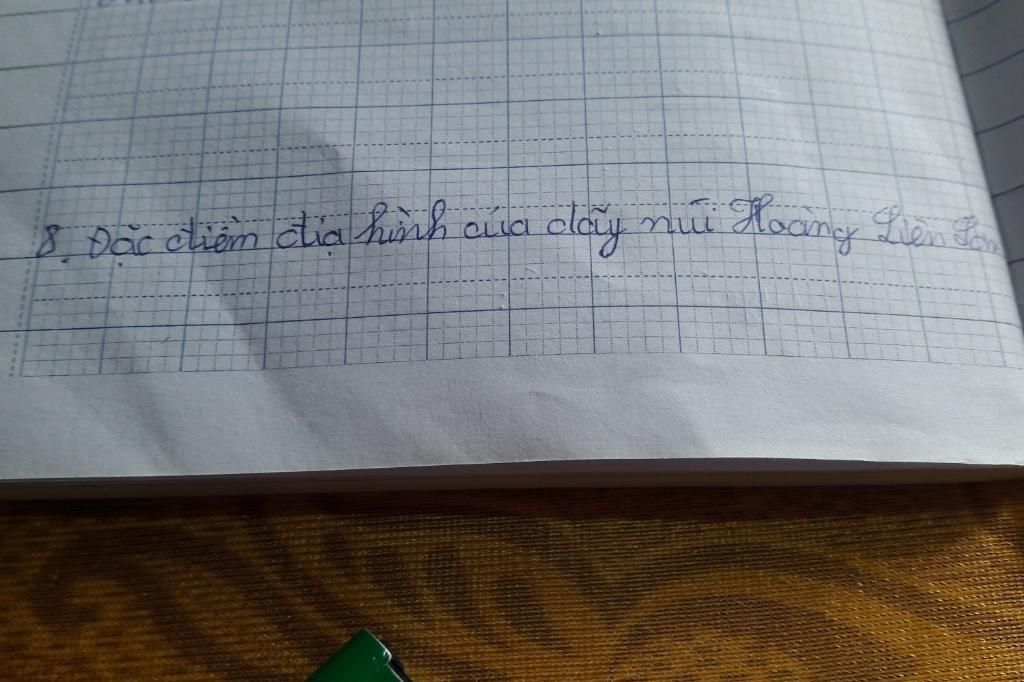 8. Đặc điểm địa hình của dãy núi Hoàng Liên Sơn